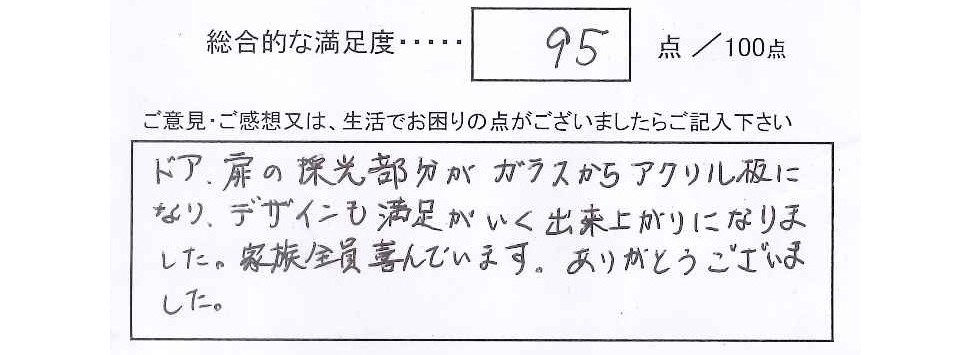 総合的な満足度‥‥‥ 95 点 ／100点
ご意見・ご感想又は、生活でお困りの点がございましたらご記入下さい
ドア、扉の採光部分がガラスからアクリル板に
なり、デザインも満足がいく出来上がりになりま
した。家族全員喜んでいます。ありがとうございま
した。